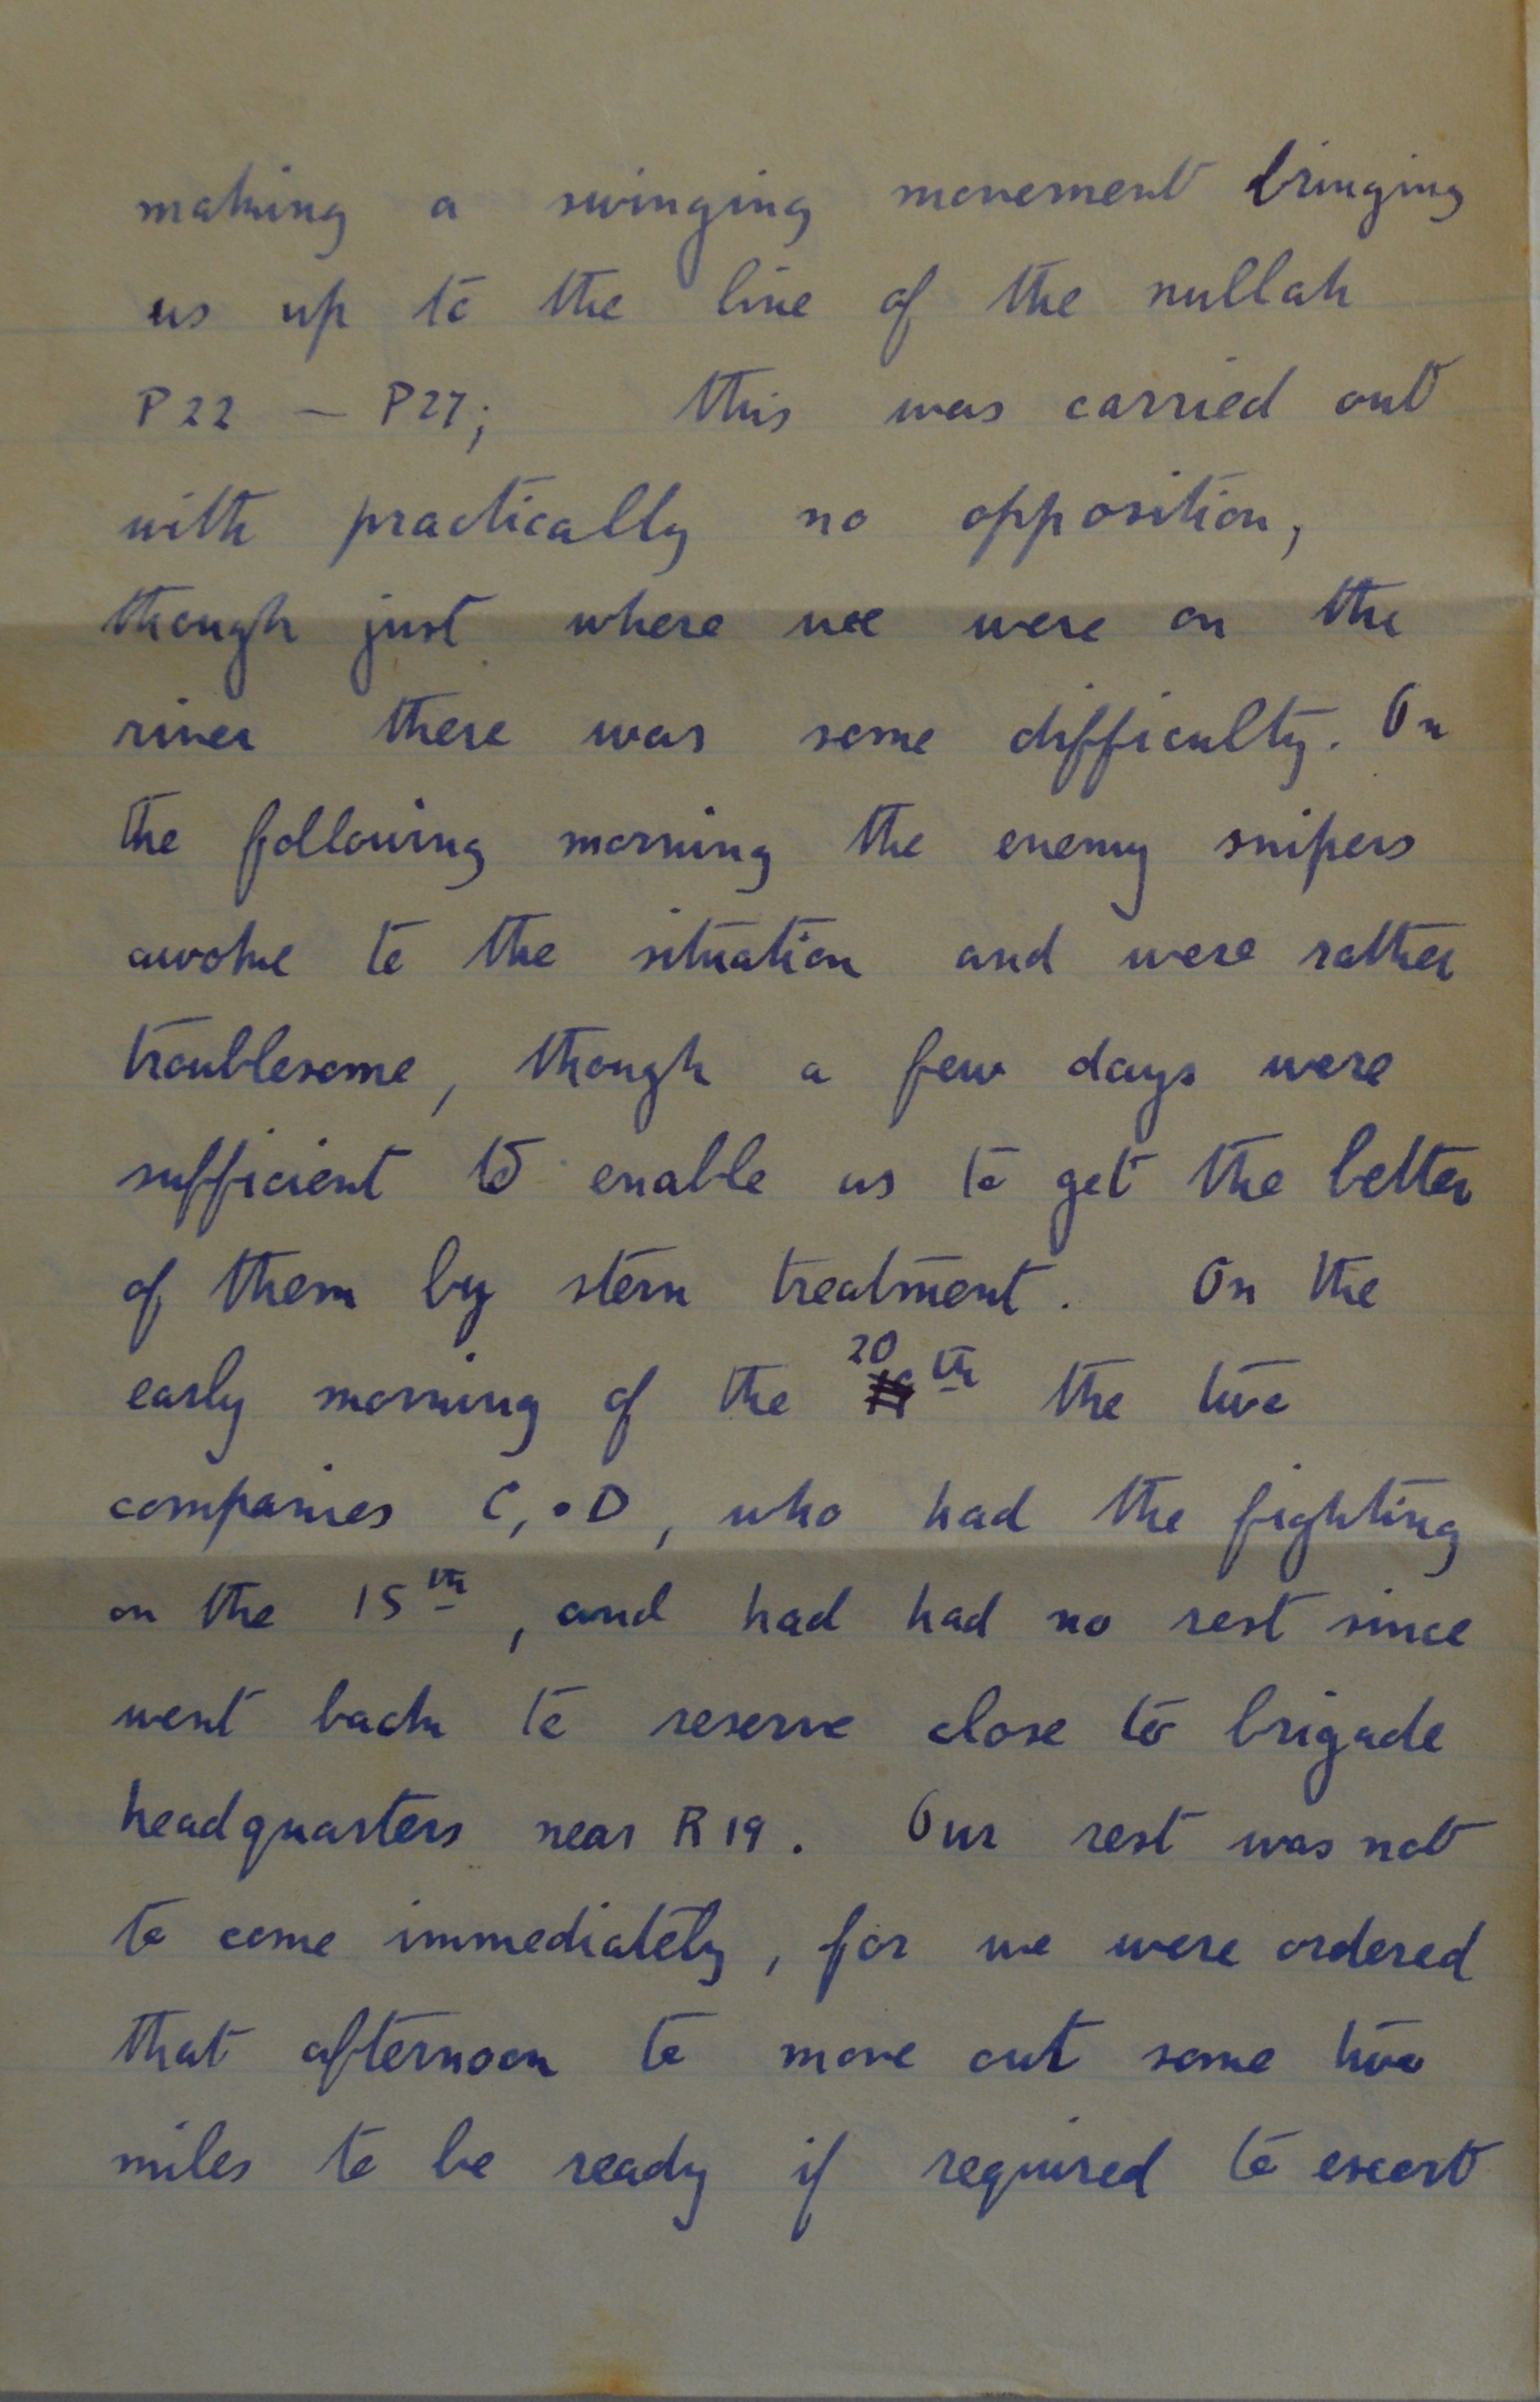 making a swinging movement bringing
us up to the line of the nullah
P22 – P27; this was carried out
with practically no opposition,
though just where we were on the
river there was some difficulty. On
the following morning the enemy snipers
awoke to the situation and were rather
troublesome, though a few days were
sufficient to enable us to get the better
of them by stern treatment. On the
early morning of the 20th the two
companies C, • D, who had the fighting
on the 15th, and had had no rest since
went back to reserve close to brigade
headquarters near R19. Our rest was not
to come immediately, for we were ordered
that afternoon to move out some two
miles to be ready if required to escort